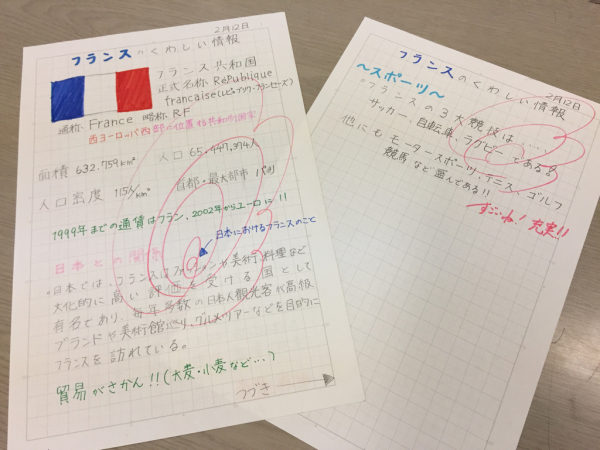 2月12日
フランスのくわしい情報
フランス共和国
正式名称 République
française(レピュブリック・フランセーズ)
通称 France 略称 RF
西ヨーロッパ西部に位置する共和制国家
面積 632.759km² 人口 65.447.374人
人口密度 115/km² 首都・最大都市 パリ
1999年までの通貨はフラン、2002年からユーロに!!
日本との関係 日本におけるフランスのこと
・日本では、フランスはファッションや美術、料理など
文化的に高い評価を受ける国として
有名であり、毎年多数の日本人観光客が高級
ブランドや美術館巡り、グルメツアーなどを目的に
フランスを訪れている。
貿易がさかん!!(大麦・小麦など…)
つづき
2月12日
フランスのくわしい情報
～スポーツ～
フランスの3大競技は……
サッカー、自転車、ラグビーである!
他にもモータースポーツ、テニス、ゴルフ
競馬など盛んである!!
すごいね!充実!!